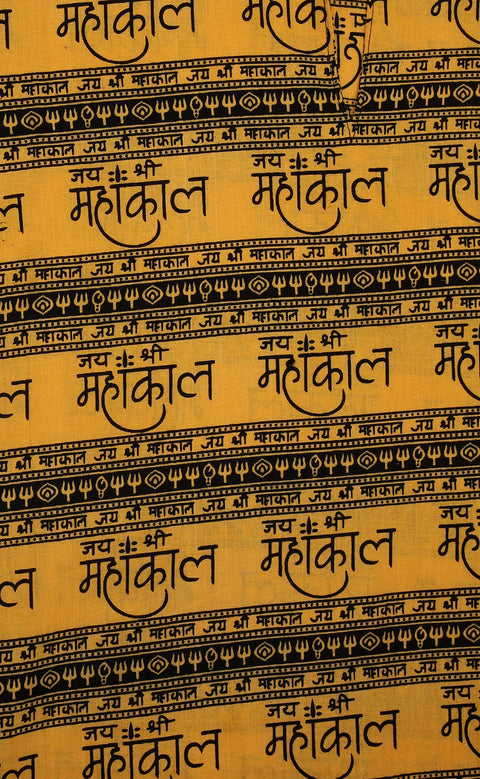 महाकाल महाकाल महाकाल
जय श्री महाकाल जय श्री महाकाल जय श्री महाकाल
श्री महाकाल जय श्री महाकाल जय श्री महाकाल जय श्री महाकाल
जय श्री जय श्री जय श्री
महाकाल महाकाल
जय श्री महाकाल जय श्री महाकाल जय श्री महाकाल जय श्री महाकाल
जय श्री महाकाल जय श्री महाकाल जय श्री महाकाल जय श्री महाकाल
जय श्री जय श्री जय
महाकाल महाकाल
श्री महाकाल जय श्री महाकाल जय श्री महाकाल जय श्री महाकाल
श्री महाकाल जय श्री महाकाल जय श्री महाकाल जय श्री महाकाल
जय श्री जय श्री जय
महाकाल महाकाल
जय श्री महाकाल जय श्री महाकाल जय श्री महाकाल जय श्री महाकाल
श्री महाकाल जय श्री महाकाल जय श्री महाकाल जय श्री महाकाल
जय श्री जय श्री जय
महाकाल महाकाल